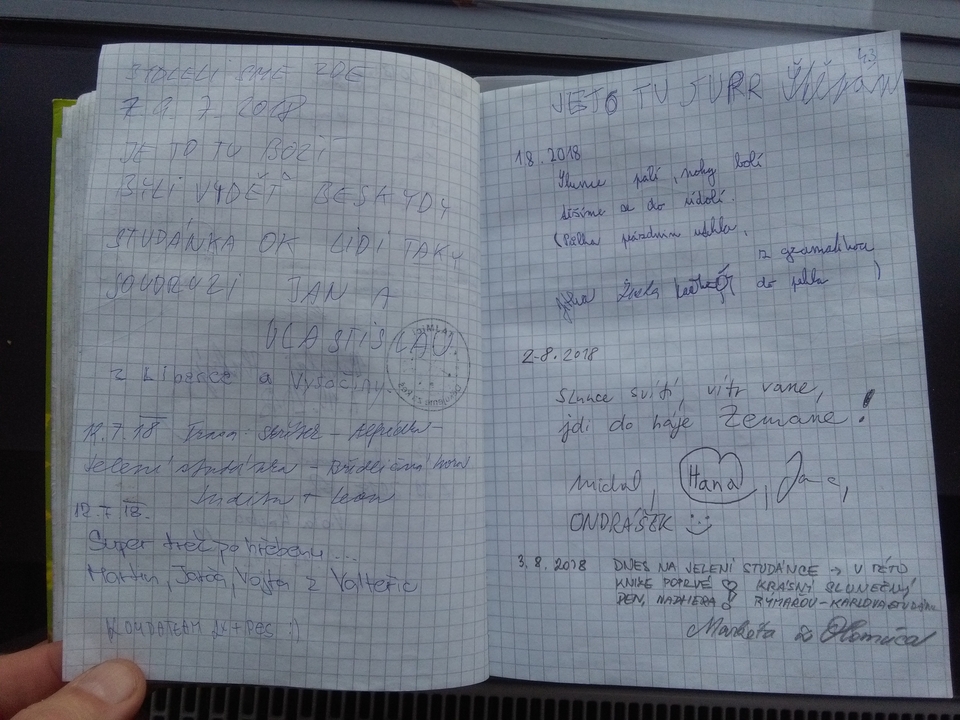 SME ZDE
9. 7. 2018
JE TO TU BOŽÍ
BYLI VYDĚŤ BESKYDY
STUDÁNKA OK LIDI TAKY
SOUDRUZI JAN A
VLASTISLAV.
z Liberce a Vysočiny
12.7.18
Jelení studánka – Břidličná hora
Judita + Leon
12.7.18.
Super trek po hřebenu ...
Martin, Jarda, Vojta z Valteřic
2x + PES :)
43
JE TO TU JUPR Štěpán
1.8.2018
Slunce pálí, nohy bolí
těšíme se do údolí.
Půlka prázdnin utekla,
z gramatikou
do pekla
2.8.2018
Slunce svítí, vítr vane,
jdi do háje Zemane!
Michal, Hana, Jana,
ONDRÁŠEK
3.8.2018 DNES NA JELENÍ STUDÁNCE → V TÉTO
KNIZE POPRVÉ ♡ KRÁSNÝ SLUNEČNÝ
DEN, NÁDHERA! RÝMAŘOV–KARLOVA STUDÁNKA
Markéta z Olomouce